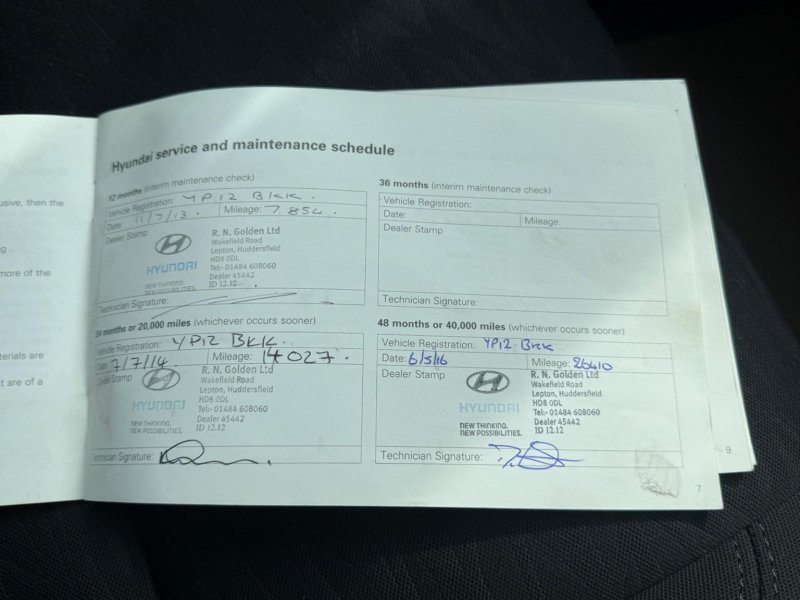 usive, then the
ng
more of the
terials are
t are of a
Hyundai service and maintenance schedule
12 months (interim maintenance check)
Vehicle Registration: YP12 BKK.
Date: 11/7/13. Mileage: 7,854.
Dealer Stamp
HYUNDAI
NEW THINKING.
NEW POSSIBILITIES.
R. N. Golden Ltd
Wakefield Road
Lepton, Huddersfield
HD8 0DL
Tel:- 01484 608060
Dealer 45442
ID 12.12
Technician Signature:
24 months or 20,000 miles (whichever occurs sooner)
Vehicle Registration: YP12 BKK.
Date: 7/7/14 Mileage: 14027.
Dealer Stamp
HYUNDAI
NEW THINKING.
NEW POSSIBILITIES.
R. N. Golden Ltd
Wakefield Road
Lepton, Huddersfield
HD8 0DL
Tel:- 01484 608060
Dealer 45442
ID 12.12
Technician Signature:
36 months (interim maintenance check)
Vehicle Registration:
Date: Mileage:
Dealer Stamp
Technician Signature:
48 months or 40,000 miles (whichever occurs sooner)
Vehicle Registration: YP12 BKK
Date: 6/5/16 Mileage: 26410
Dealer Stamp
HYUNDAI
NEW THINKING.
NEW POSSIBILITIES.
R. N. Golden Ltd
Wakefield Road
Lepton, Huddersfield
HD8 0DL
Tel:- 01484 608060
Dealer 45442
ID 12.12
Technician Signature:
7
9